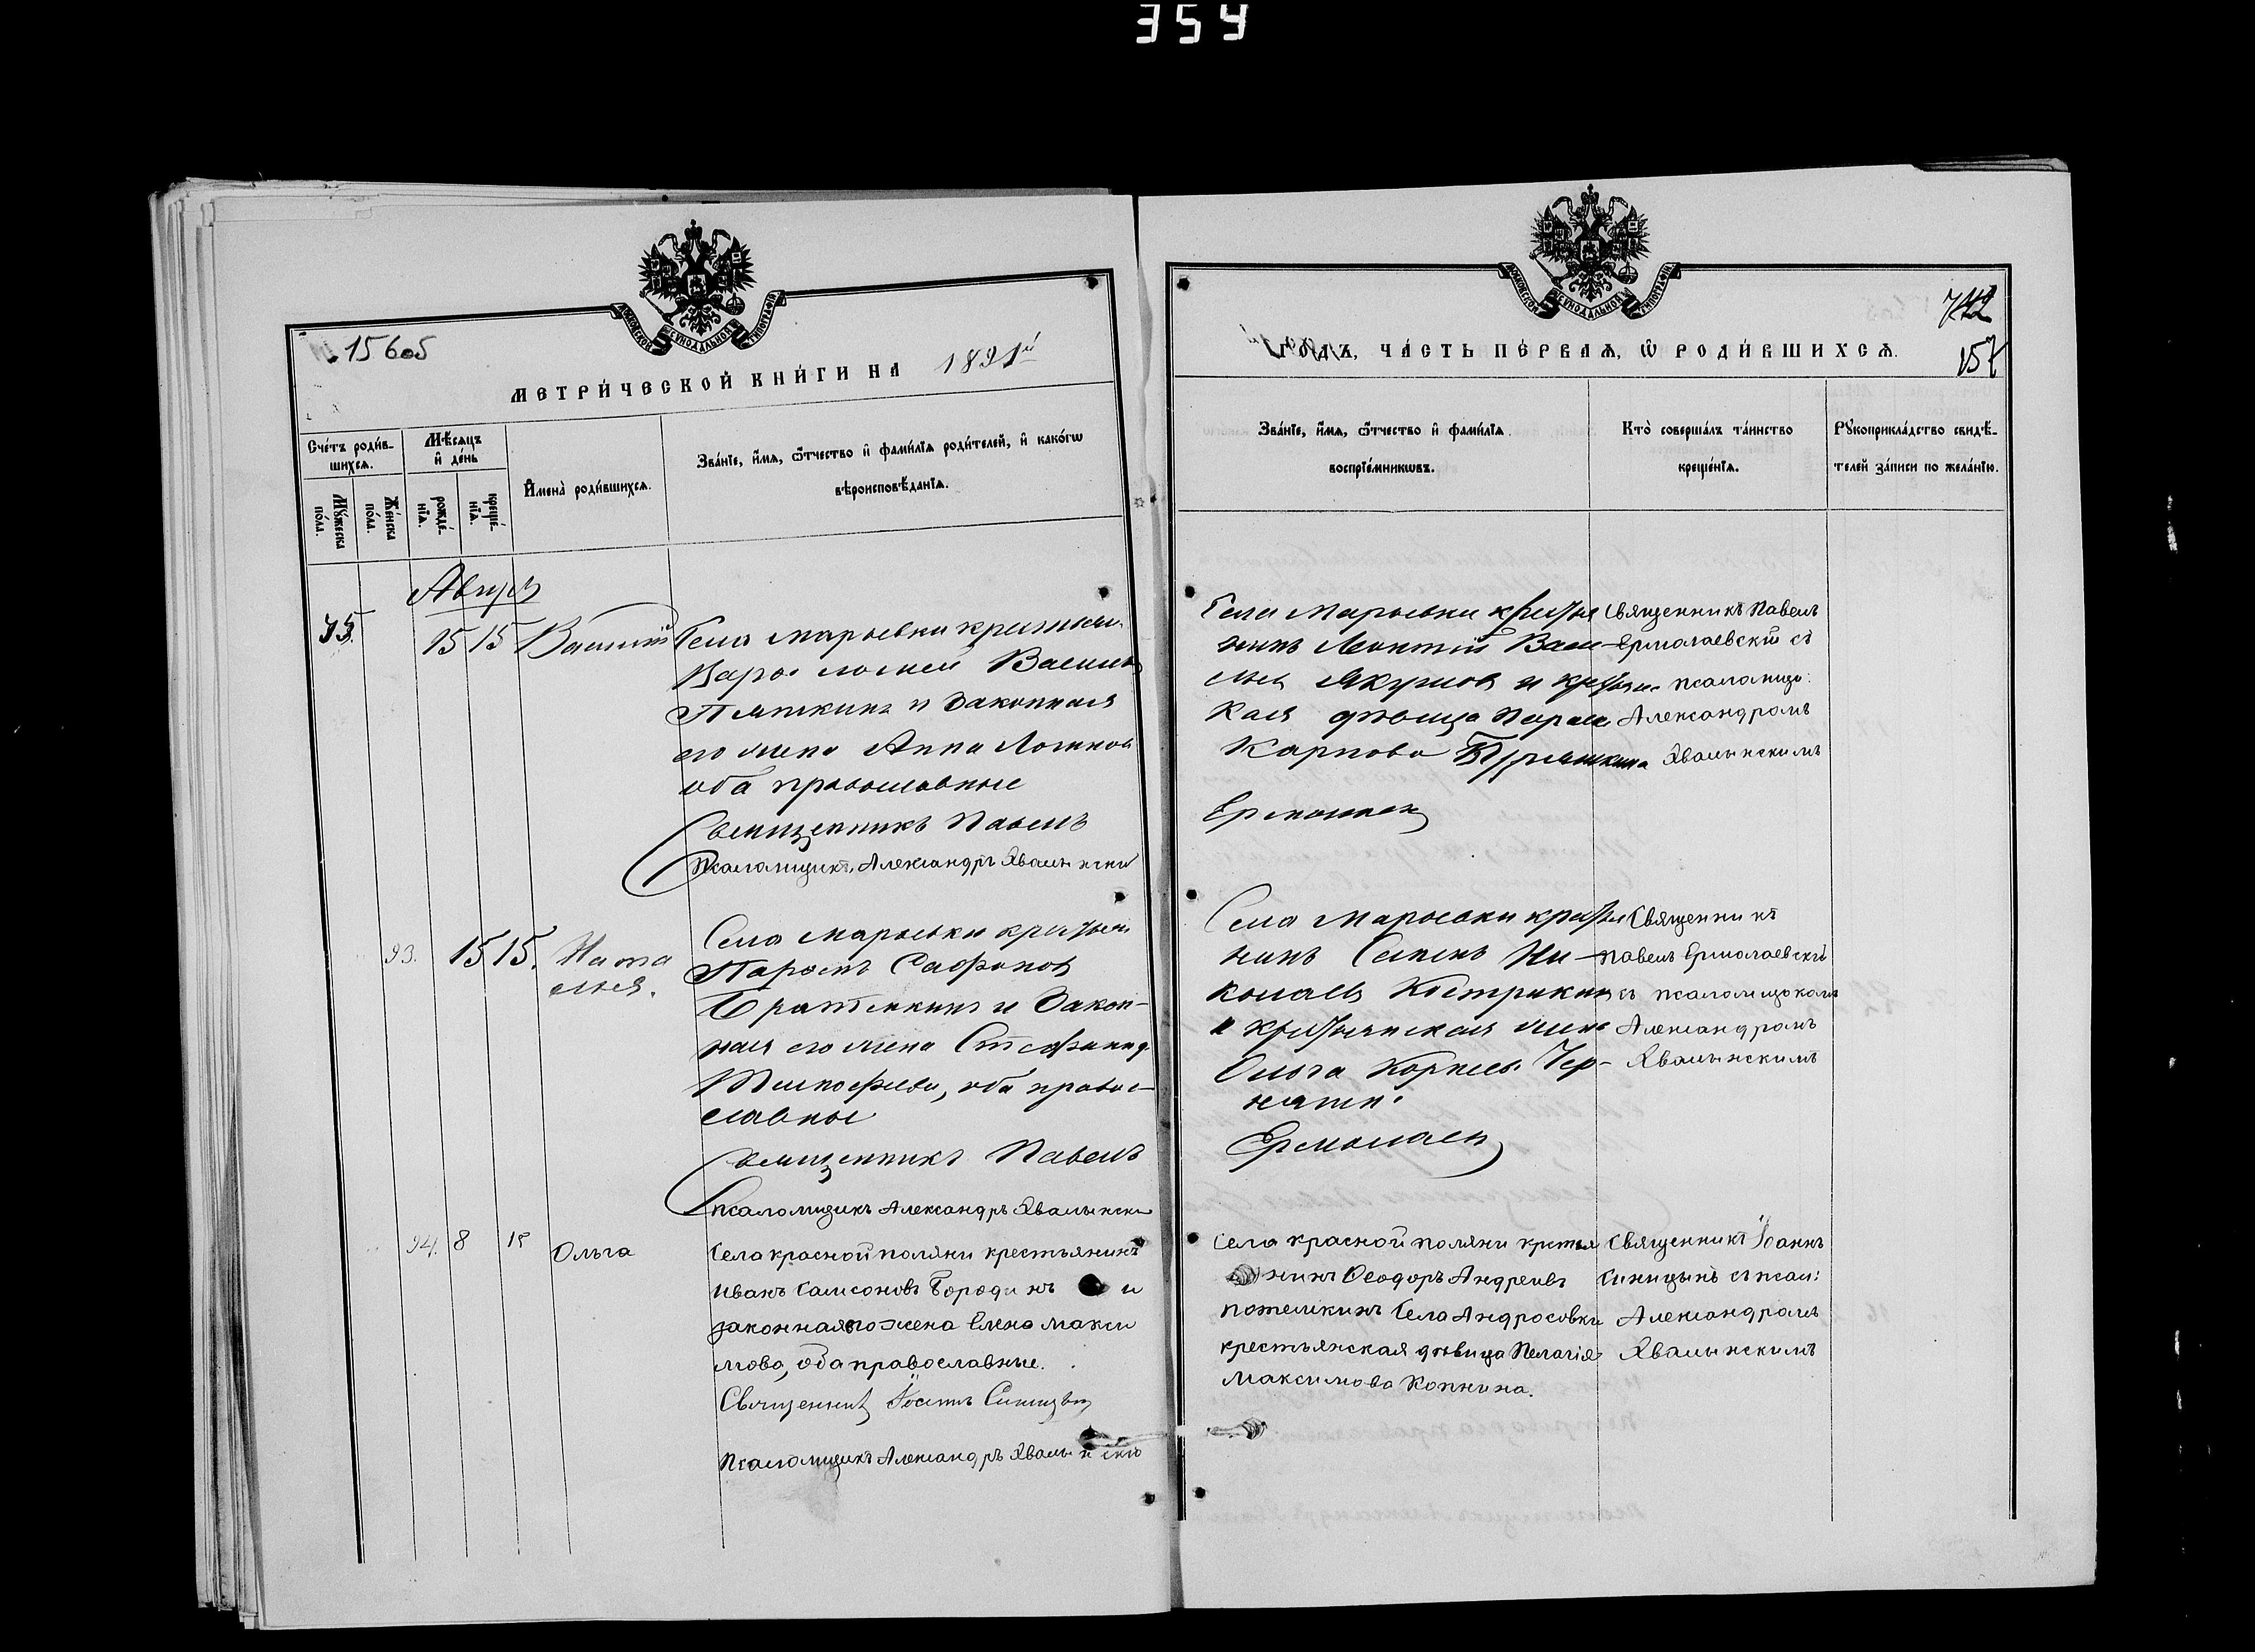 354
15605
МЕТРИ́ЧЕСКОЙ КНИ́ГИ НА 1891й
Сче́тъ роди́в-
шихсѧ.
Мѣ́сѧцъ
и҆ де́нь
И҆мена̀ роди́вшихсѧ.
Зва́нїе, и҆́мѧ, ѿ́чество и҆ фамі́лїѧ роди́телей, и҆ како́гѡ
вѣроисповѣ́данїѧ.
Мꙋ́жеска
по́ла.
Же́нска
по́ла.
рожде́-
нїѧ.
креще́-
нїѧ.
Августъ
15 15 Василій Села Марьевки крестьян.
Василь
и законная
его жена Анна
оба православные
Священникъ Павелъ
Псаломщикъ Александръ Хвалынскій
93. 15 15. Ната
лья.
Села Марьевки крестьян
Сафронов
и закон-
ная его жена Стефанида
Тимофеева, оба правос-
лавные
Священникъ Павелъ
Псаломщикъ Александръ Хвалынски
94. 8 15 Ольга
Села красной поляни крестьянинъ
Иванъ Самсоновъ Бородинъ и
законная его жена Елена Макси
мова, оба православные.
Священникъ Іоаннъ Синицын
Псаломщикъ Александръ Хвалынскій
ГО́ДЪ, ЧА́СТЬ ПЕ́РВАѦ, Ѡ҆ РОДИ́ВШИХСѦ.
742
157
Зва́нїе, и҆́мѧ, ѿ́чество и҆ фамі́лїѧ
воспрїе́мникѡвъ.
Кто̀ соверша́лъ та́инство
креще́нїѧ.
Рꙋкоприкла́дство свидѣ́-
телей за́писи по жела́нїю.
Села Марьевки крестья
нинъ Леонтій Васи-
льев Якунов и крестьянс
кая девица
Карпова
Ермолаев
Священникъ Павелъ
Ермолаевскій съ
псаломщ:
Александромъ
Хвалынскимъ
Села Марьевки крестья
нинъ Семенъ Ни-
колаев Кострикин
и крестьянская жена
Ольга Чер-
Ермолаев
Священникъ
Павелъ Ермолаевскій
съ псаломщиком
Александромъ
Хвалынскимъ
Села красной поляни крстья
нинъ Ѳеодоръ Андреивъ
Потемкинъ Села Андросовки
крестьянская дѣвица Пелагія
Максимова Копнина.
Священникъ Іоаннъ
Синицынъ съ псал:
Александромъ
Хвалынскимъ